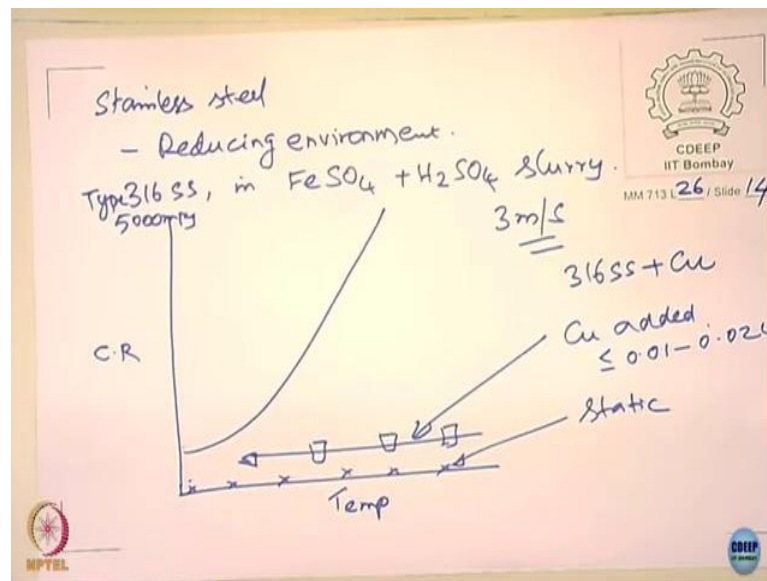 Stainless steel
- Reducing environment.
Type 316 SS, in FeSO4 + H2SO4 slurry.
5000mpy
3 m/s
316SS + Cu
C.R
Cu added
≤ 0.01 - 0.02
Static
Temp
CDEEP
IIT Bombay
MM 713 L 26 / Slide 14
NPTEL
CDEEP
IIT BOMBAY